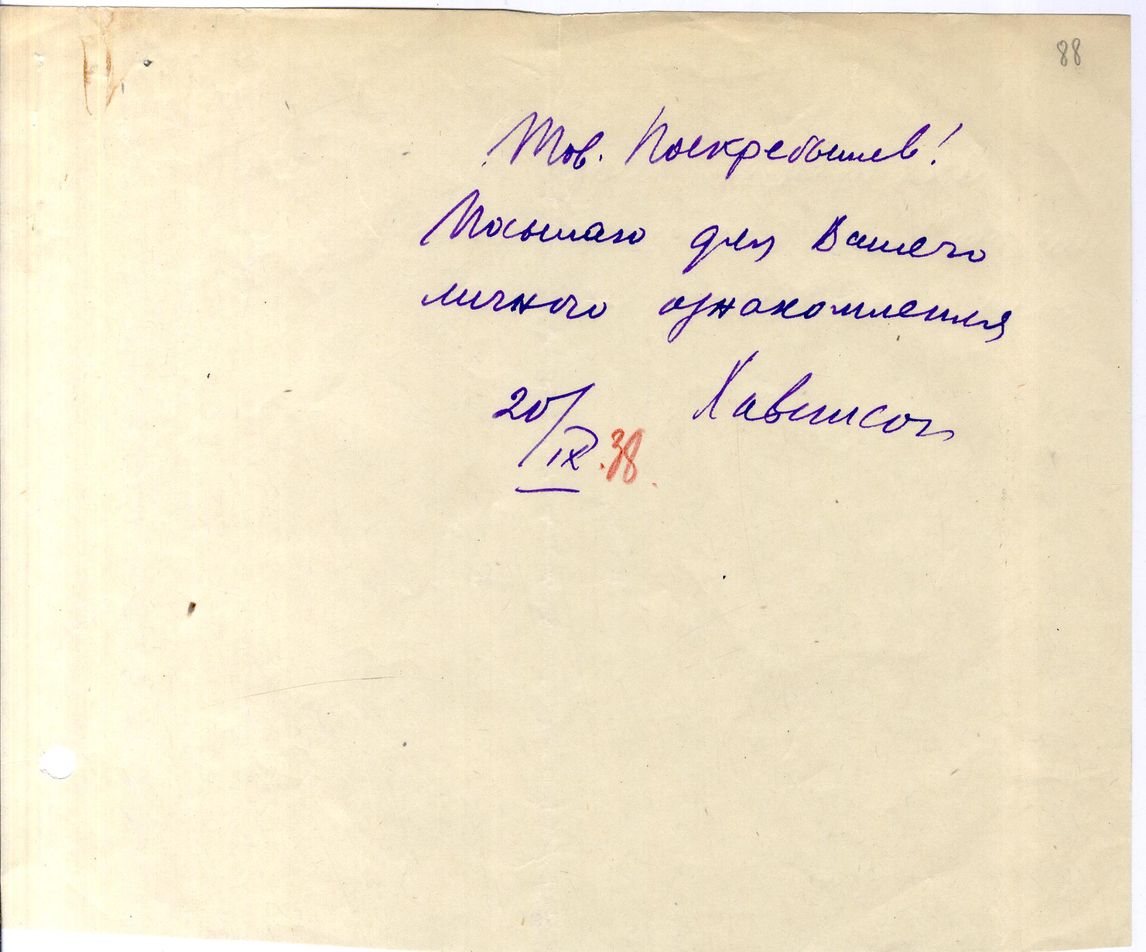 88
Тов. Поскребышев!
Посылаю для Вашего
личного ознакомления
20/IX.38. Хавинсон